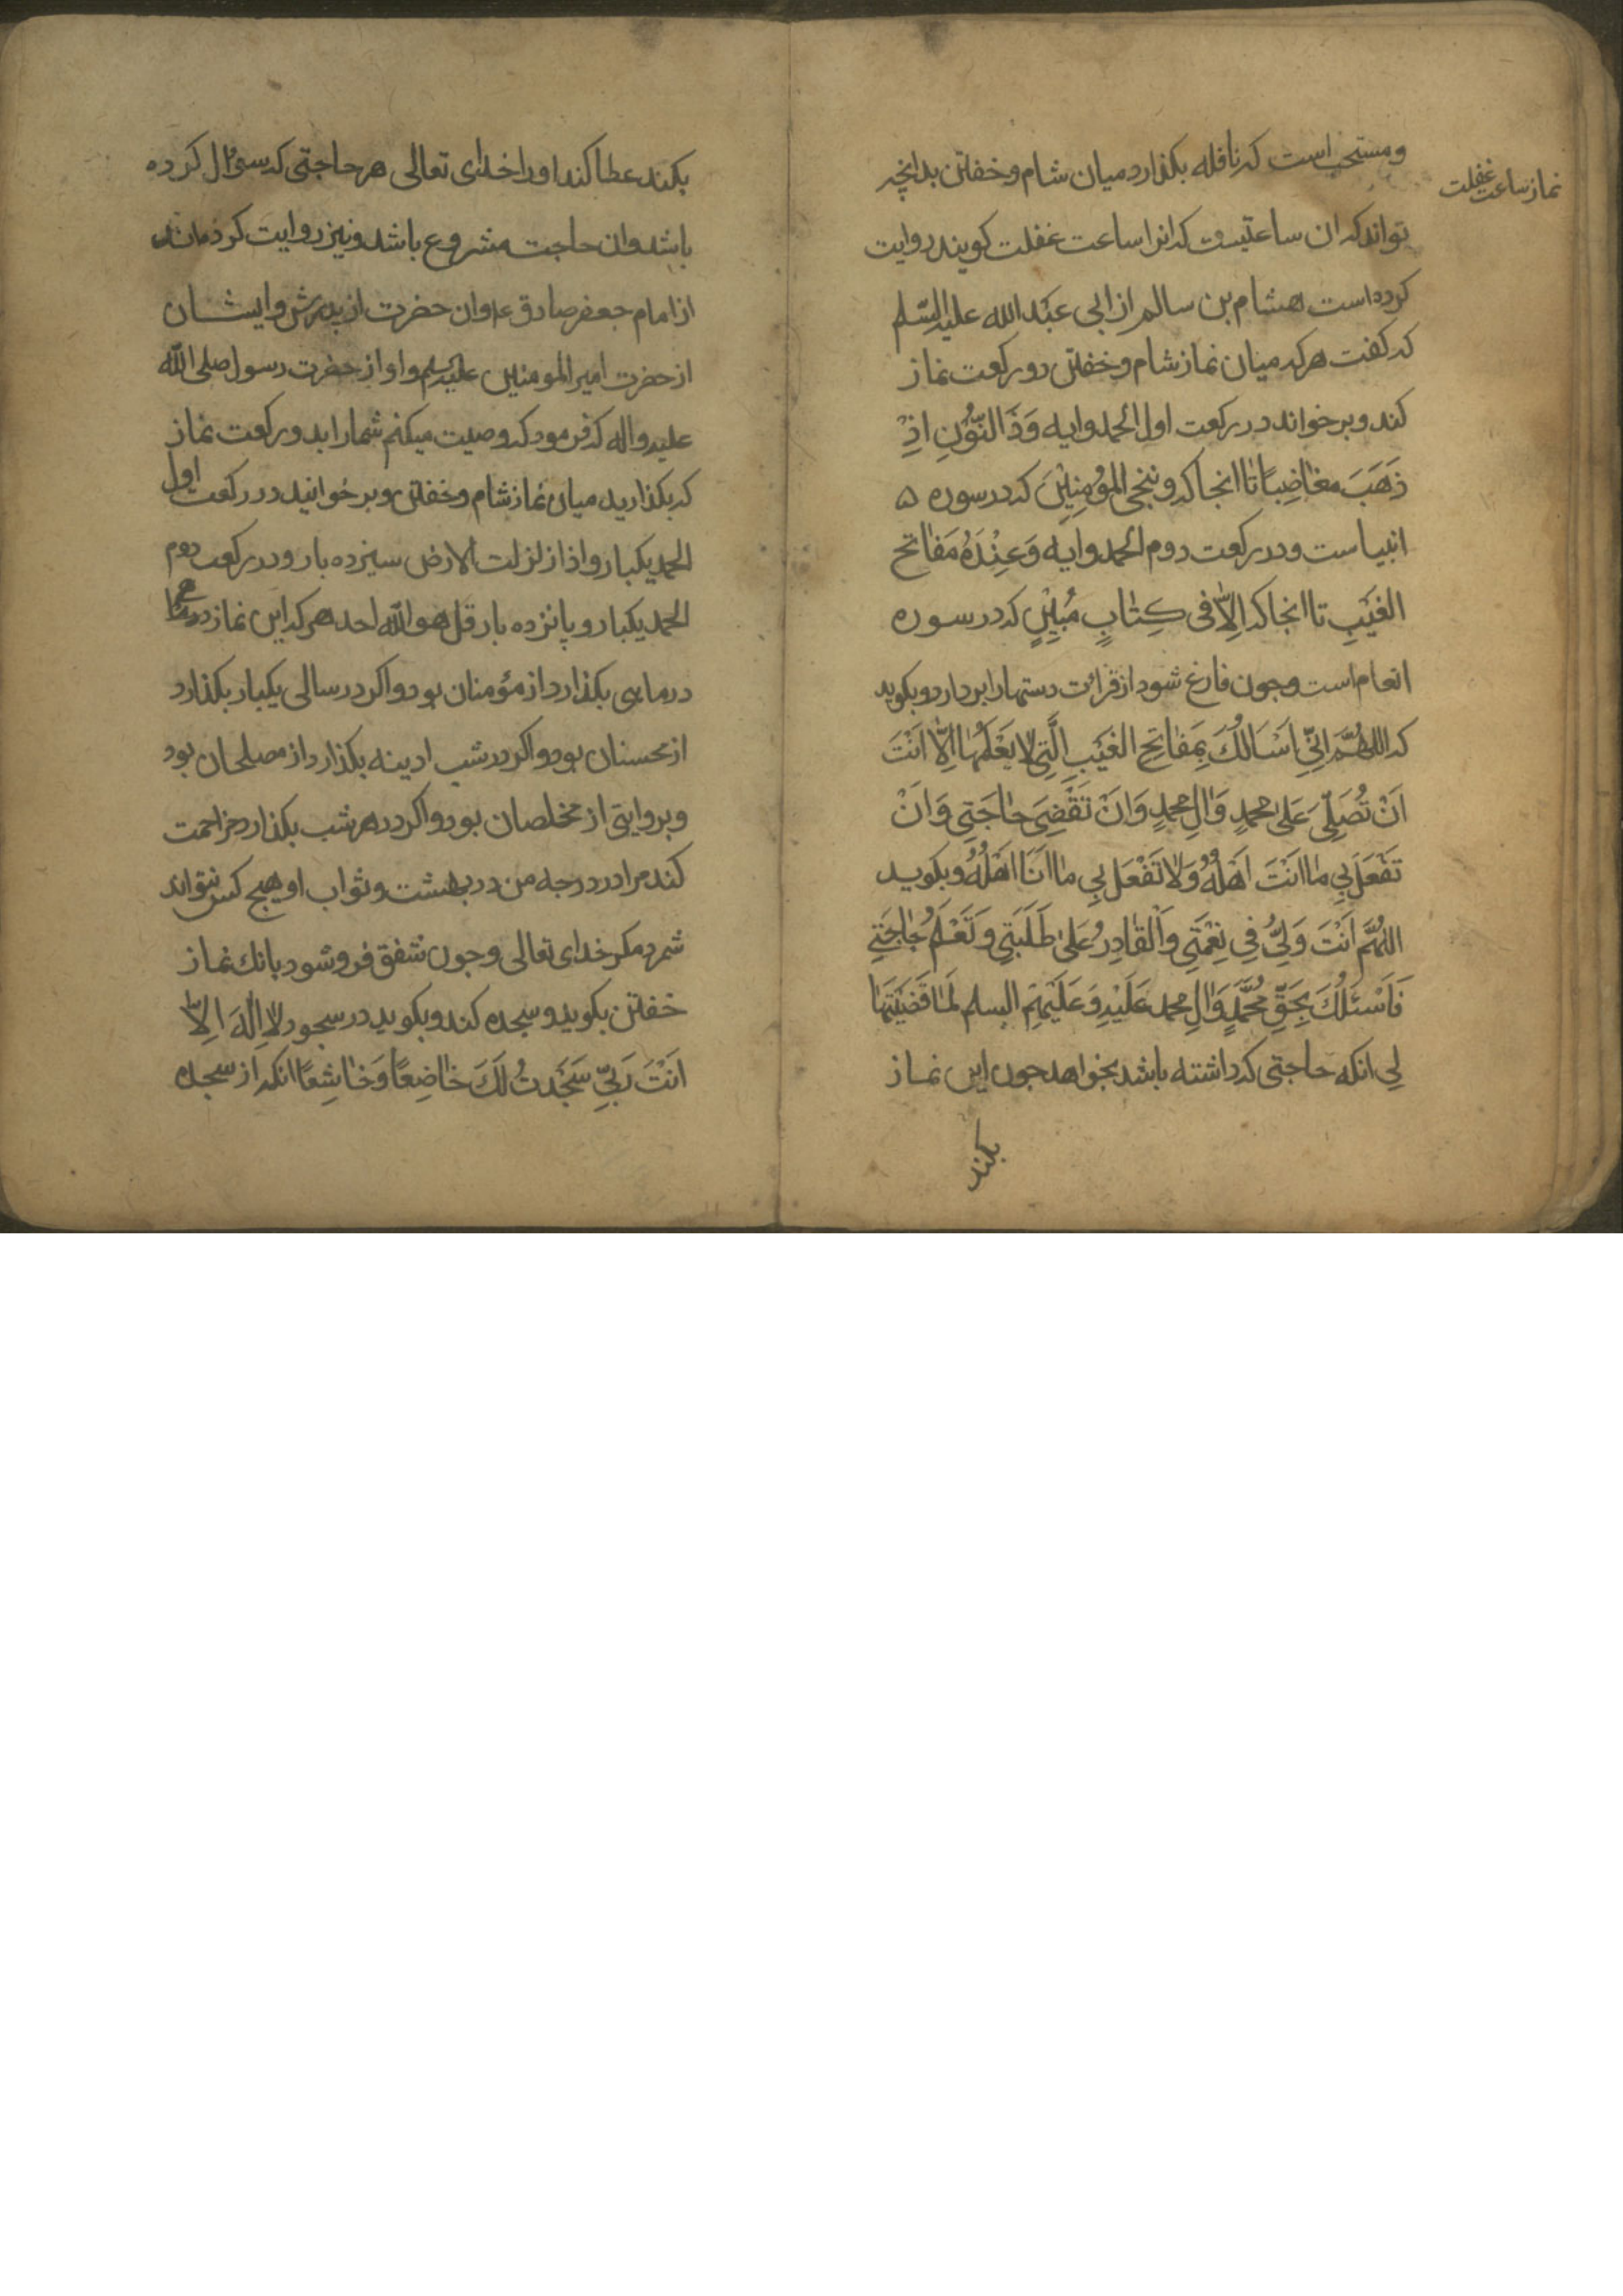 نماز ساعت غفلت
و مستحب است که نافله بکذارد میان شام و خفتن بدانچه
تواند که ان ساعتیست که انرا ساعت غفلت کویند روایت
کرده است هشام بن سالم از ابی عبد الله علیه السلم
که کفت هر که میان نماز شام و خفتن دو رکعت نماز
کند و بر خواند در رکعت اول الحمد و ایه وَذَا النُّونِ اِذْ
ذَهَبَ مغَاضِبًا تا انجا که و ننجی المؤمِنِیْنَ که در سوره
انبیاست و در رکعت دوم الحمد و ایه وَعِنْدَهُ مَفَاتح
الغَیْبِ تا انجا که اِلاّ فی کِتٰابٍ مُبِیْنٍ که در سوره
انعام است و جون فارغ شود از قرائت دستها را بردارد و بکوید
که اللهُمَّ اِنِّی اَسْاَلُكَ بِمَفٰاتِحِ الغَیْبِ الَّتِی لا یَعْلَمُهٰا اِلّا اَنْتَ
اَنْ تُصَلِّیَ عَلیٰ محمدٍ وَالِ محمدٍ وَ اَنْ تَقْضِیَ حٰاجَتِی وَ اَنْ
تَفْعَلَ بِی مٰا اَنْتَ اَهْلُهُ وَلاٰ تَفْعَل بِی مٰا اَنَا اَهْلُهُ و بکوید
اللهُمَّ اَنْتَ وَلِیُّ فِی نِعْمَتِی وَالْقٰادِرُ عَلیٰ طَلَبَتِی وَ تَعْلَمُ حٰاجَتِی
فَاَسْئَلُكَ بِحَقِّ مُحَمَّدٍ وَ الِ محمد عَلَیْهِ وَ عَلَیْهِمُ السلم لَمّٰا قَضَیْتَهٰا
لِی انکه حاجتی که داشته باشد بخواهد جون این نماز
بکند
بکند عطا کند او را خدای تعالی هر حاجتی که سؤال کرده
باشد و ان حاجت مشروع باشد و نیز روایت کرده‌اند
از امام جعفر صادق ع و ان حضرت از پدرش و ایشان
از حضرت امیر المومنین علیه السلم و او از حضرت رسول صلی الله
علیه و اله که فرمود که وصیت میکنم شما را بدو رکعت نماز
که بکذارید میان نماز شام و خفتن و بر خوانید در رکعت اول
الحمد یکبار و اذا زلزلت الارض سیزده بار و در رکعت دوم
الحمد یکبار و پانزده بار قل هو الله احد هر که این نماز در
در ماهی بکذارد از مؤمنان بود و اکر در سالی یکبار بکذارد
از محسنان بود و اکر در شب ادینه بکذارد از مصلحان بود
و بروایتی از مخلصان بود و اکر در هر شب بکذارد مزاحمت
کند مرا در درجه من در بهشت و ثواب او هیج کس نتواند
شمرد مکر خدای تعالی و جون شفق فرو شود بانك نماز
خفتن بکوید و سجده کند و بکوید در سجود لاٰ اِلٰهَ اِلاّٰ
اَنْتَ رَبِّی سَجَدتُ لَكَ خٰاضِعًا وَ خٰاشِعًا انکه از سجده